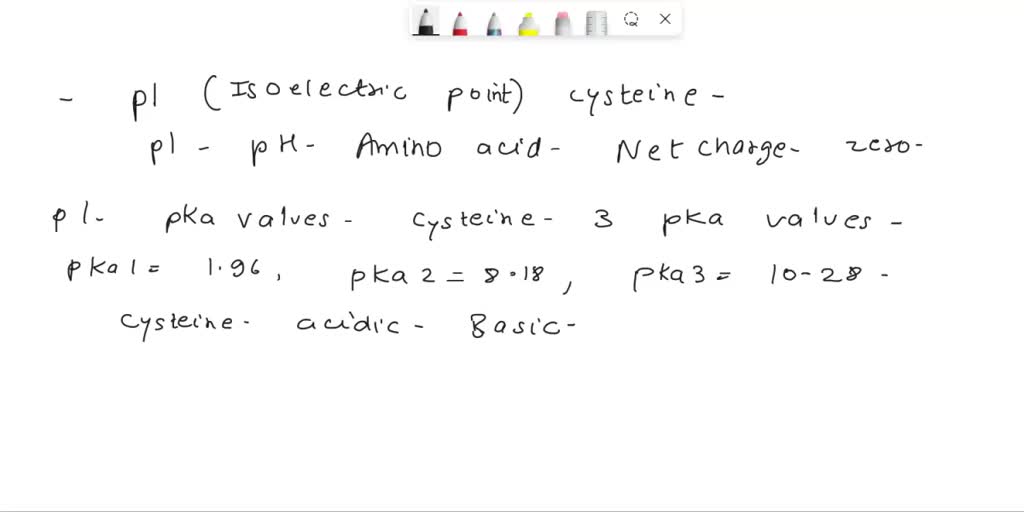 - pI (Isoelectric point) cysteine -
pI - pH - Amino acid - Net charge - zero -
pI - pka values - cysteine - 3 pka values -
pka1 = 1.96, pka2 = 8.18, pka3 = 10-28 -
cysteine - acidic - Basic -